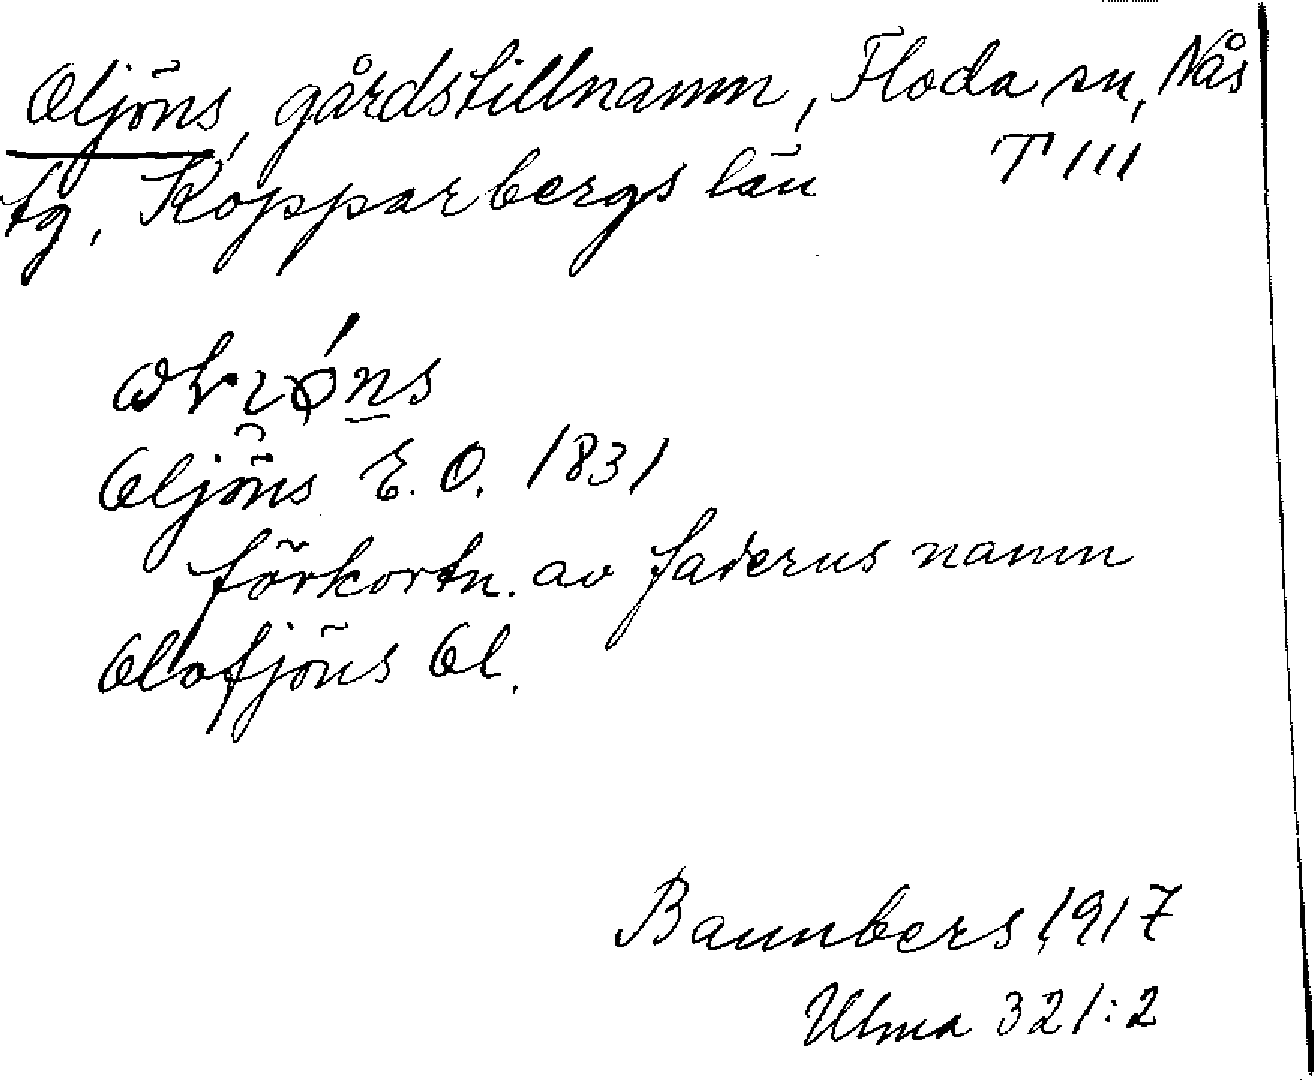 Oljöns, gårdstillnamn, Floda sn, Nås
tg, Kopparbergs län T III
Oljöns E. O. 1831
förkortn. av faderns namn
Olofjöns Ol.
1917
Ulma 321:2